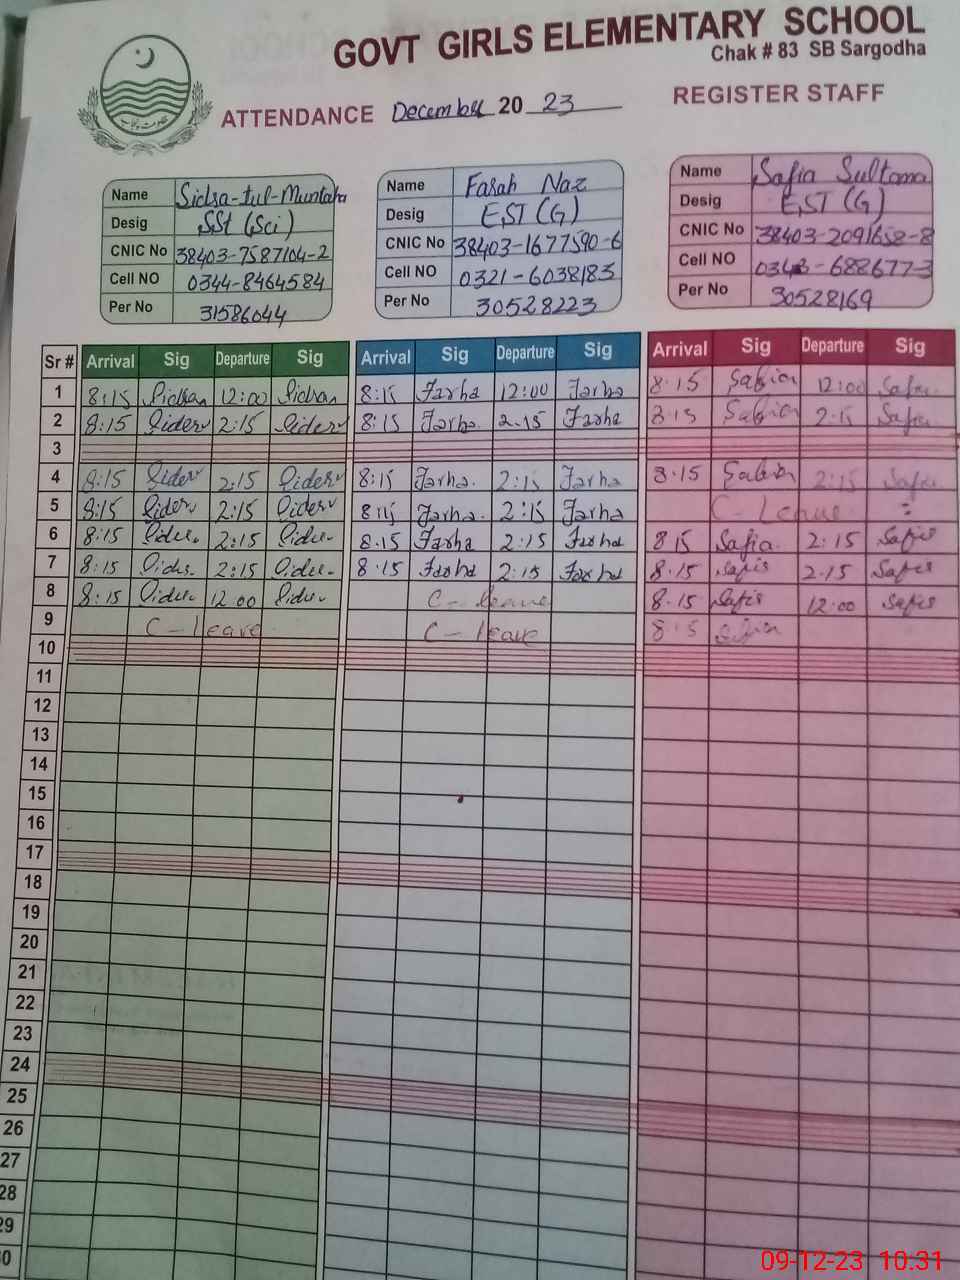 GOVT GIRLS ELEMENTARY SCHOOL
Chak # 83 SB Sargodha
ATTENDANCE December 20 23 REGISTER STAFF
Name Sidsa-tul-Muntaha
Desig SSt (Sci)
CNIC No 38403-7587104-2
Cell NO 0344-8464584
Per No 31586044
Name Farah Naz
Desig EST (G)
CNIC No 38403-1677590-6
Cell NO 0321-6038183
Per No 30528223
Name Safia Sultana
Desig EST (G)
CNIC No 38403-2091658-8
Cell NO 0343-6886773
Per No 30528169
Sr # Arrival Sig Departure Sig Arrival Sig Departure Sig Arrival Sig Departure Sig
1 8:15 12:00 8:15 Farha 12:00 Farha 8.15 Safia 12:00 Safia
2 8:15 2:15 8:15 Farha 2.15 Farha 8.15 Safia 2.15 Safia
3
4 8:15 2:15 8:15 Farha. 2:15 Farha 8.15 Safia 2:15 Safia
5 8:15 2:15 8:15 Farha. 2:15 Farha C-Leave
6 8:15 2:15 8.15 Farha 2:15 Farha 8 15 Safia. 2:15 Safia
7 8:15 2:15 8.15 Farha 2:15 Farha 8.15 Safia 2.15 Safia
8 8:15 12.00 C-leave 8.15 Safia 12:00 Safia
9 C-leave C-leave 8.15 Safia
10
11
12
13
14
15
16
17
18
19
20
21
22
23
24
25
26
27
28
29
30
09-12-23 10:31